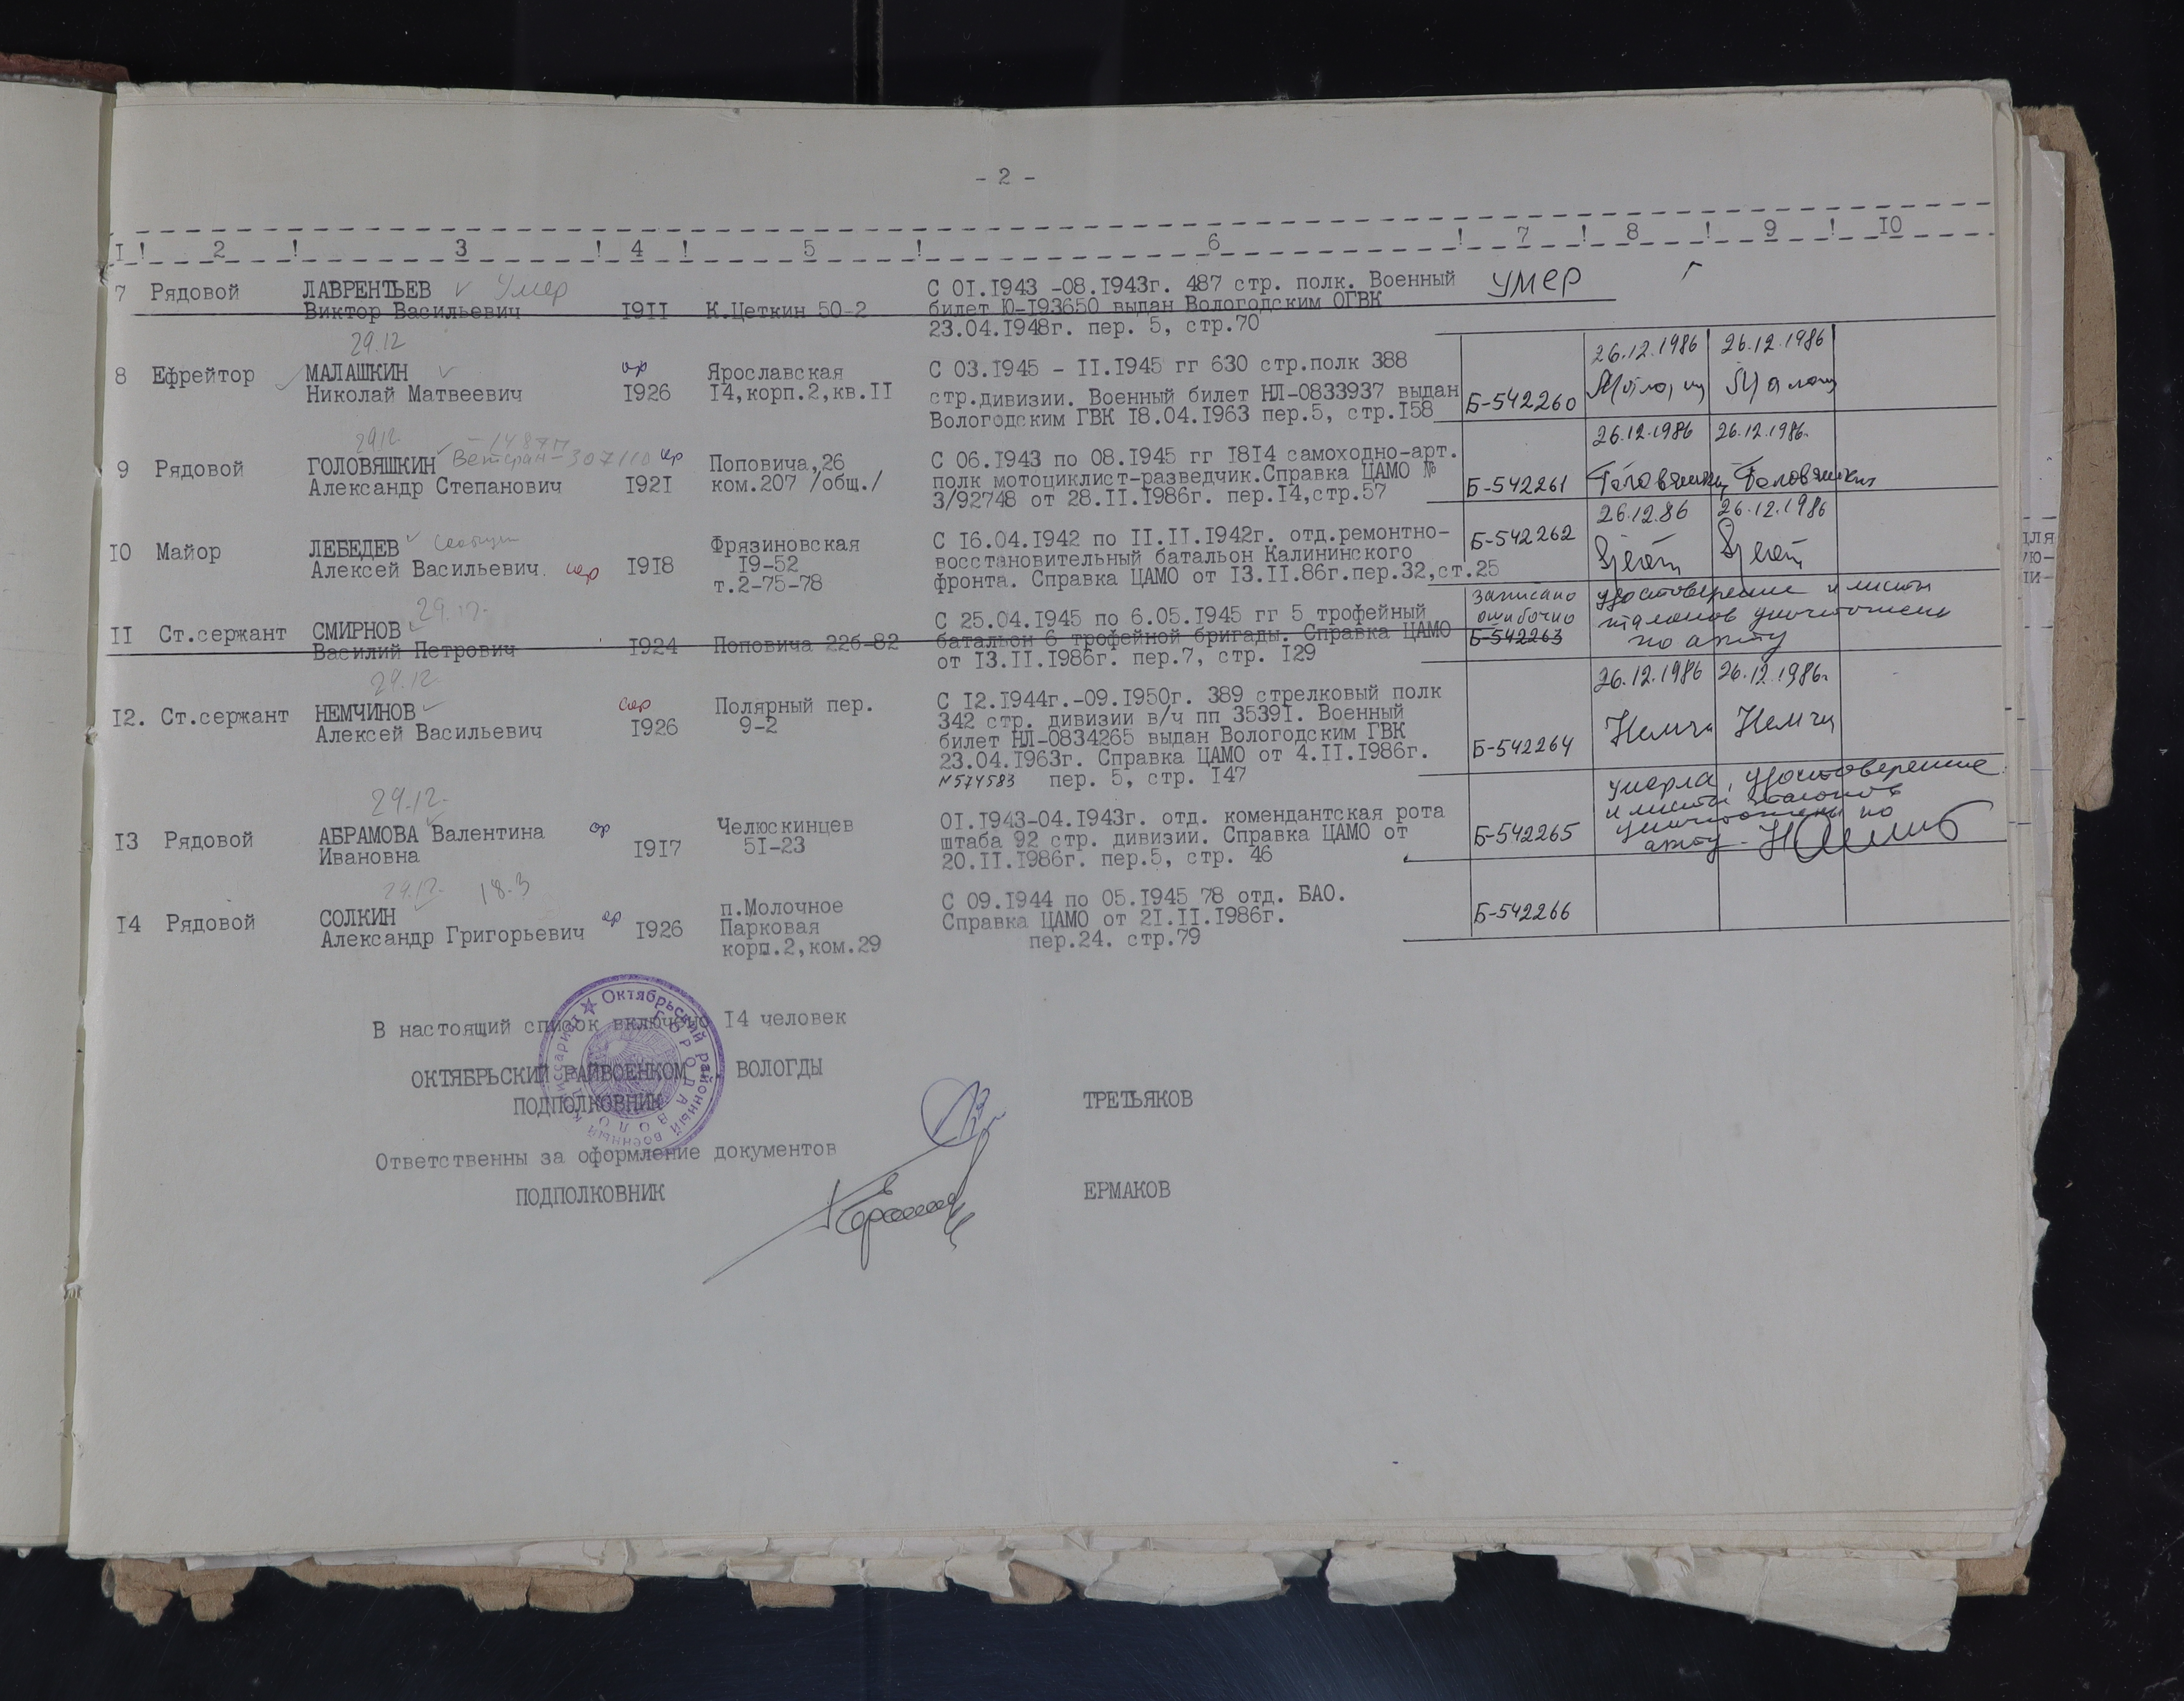 - 2 -
I ! 2 ! 3 ! 4 ! 5 ! 6 ! 7 ! 8 ! 9 ! 10
7 Рядовой ЛАВРЕНТЬЕВ Умер С 01.1943 -08.1943г. 487 стр. полк. Военный умер
Виктор Васильевич 1911 К.Цеткин 50-2 билет Ю-193650 выдан Вологодским ОГВК
23.04.1948г. пер. 5, стр.70
29.12 26.12.1986 26.12.1986
8 Ефрейтор МАЛАШКИН ор Ярославская С 03.1945 - II.1945 гг 630 стр.полк 388
Николай Матвеевич 1926 14,корп.2,кв.II стр.дивизии. Военный билет НЛ-0833937 выдан Б-542260
Вологодским ГВК 18.04.1963 пер.5, стр.158
29.12 26.12.1986 26.12.1986.
9 Рядовой ГОЛОВЯШКИН Ветеран-307110 ор Поповича,26 С 06.1943 по 08.1945 гг 1814 самоходно-арт.
Александр Степанович 1921 ком.207 /общ./ полк мотоциклист-разведчик.Справка ЦАМО № Б-542261 Головяшкин Головяшкин
3/92748 от 28.II.1986г. пер.14,стр.57
26.12.86 26.12.1986
10 Майор ЛЕБЕДЕВ Фрязиновская С 16.04.1942 по II.II.1942г. отд.ремонтно- Б-542262
Алексей Васильевич. 1918 19-52 восстановительный батальон Калининского
т.2-75-78 фронта. Справка ЦАМО от 13.II.86г.пер.32,ст.25
29.12. записано удостоверение и листы
II Ст.сержант СМИРНОВ С 25.04.1945 по 6.05.1945 гг 5 трофейный ошибочно талонов уничтожены
Василий Петрович 1924 Поповича 226-82 батальон 6 трофейной бригады. Справка ЦАМО Б-542263 по акту
от 13.II.1986г. пер.7, стр. 129
29.12. 26.12.1986 26.12.1986.
12. Ст.сержант НЕМЧИНОВ Полярный пер. С 12.1944г.-09.1950г. 389 стрелковый полк
Алексей Васильевич 1926 9-2 342 стр. дивизии в/ч пп 35391. Военный
билет НЛ-0834265 выдан Вологодским ГВК Б-542264 Немчи Немчи
23.04.1963г. Справка ЦАМО от 4.II.1986г.
№574583 пер. 5, стр. 147
29.12. умерла, удостоверение
и листы талонов
13 Рядовой АБРАМОВА Валентина ор Челюскинцев 01.1943-04.1943г. отд. комендантская рота уничтожены по
Ивановна 1917 51-23 штаба 92 стр. дивизии. Справка ЦАМО от Б-542265 акту -
20.II.1986г. пер.5, стр. 46
29.12. 18.3
14 Рядовой СОЛКИН ор п.Молочное С 09.1944 по 05.1945 78 отд. БАО.
Александр Григорьевич 1926 Парковая Справка ЦАМО от 21.II.1986г. Б-542266
корп.2,ком.29 пер.24. стр.79
В настоящий список включено 14 человек
ОКТЯБРЬСКИЙ РАЙВОЕНКОМ ВОЛОГДЫ
ПОДПОЛКОВНИК ТРЕТЬЯКОВ
Октябрьский районный военный комиссариат
ГОРОДА ВОЛОГДЫ
Ответственны за оформление документов
ПОДПОЛКОВНИК ЕРМАКОВ